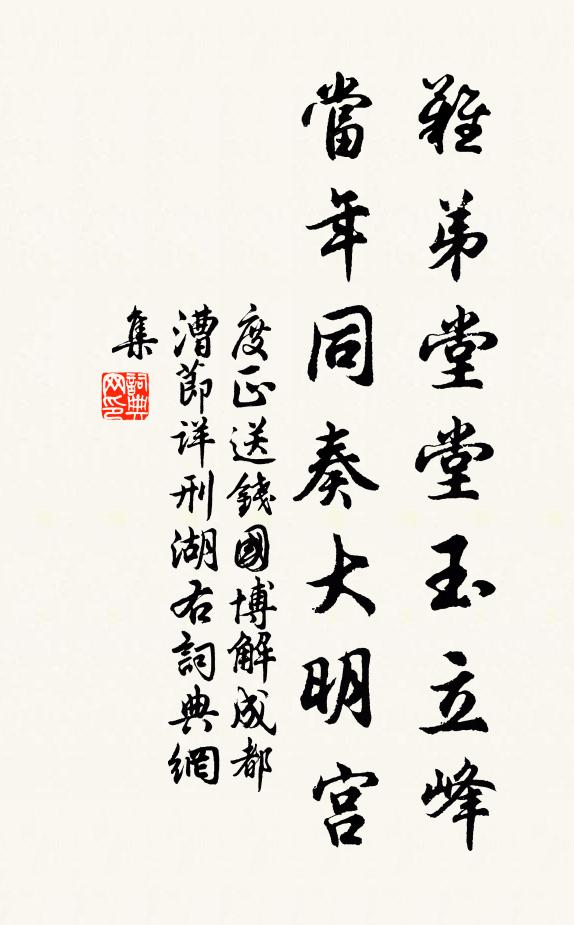 難弟堂堂玉立峰
當年同奏大明宮
度正送錢國博解成都
漕節詳刑湖右詞典網
集
詞典網印